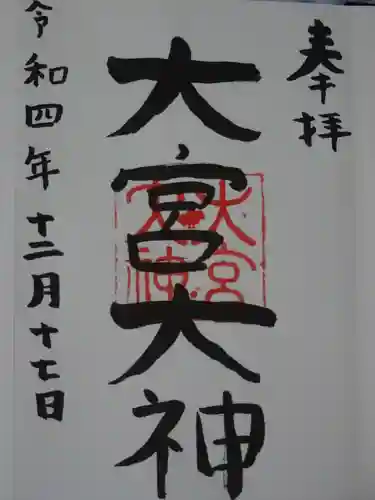 奉拝
大宮大神
大宮
大神
令和四年十二月十七日